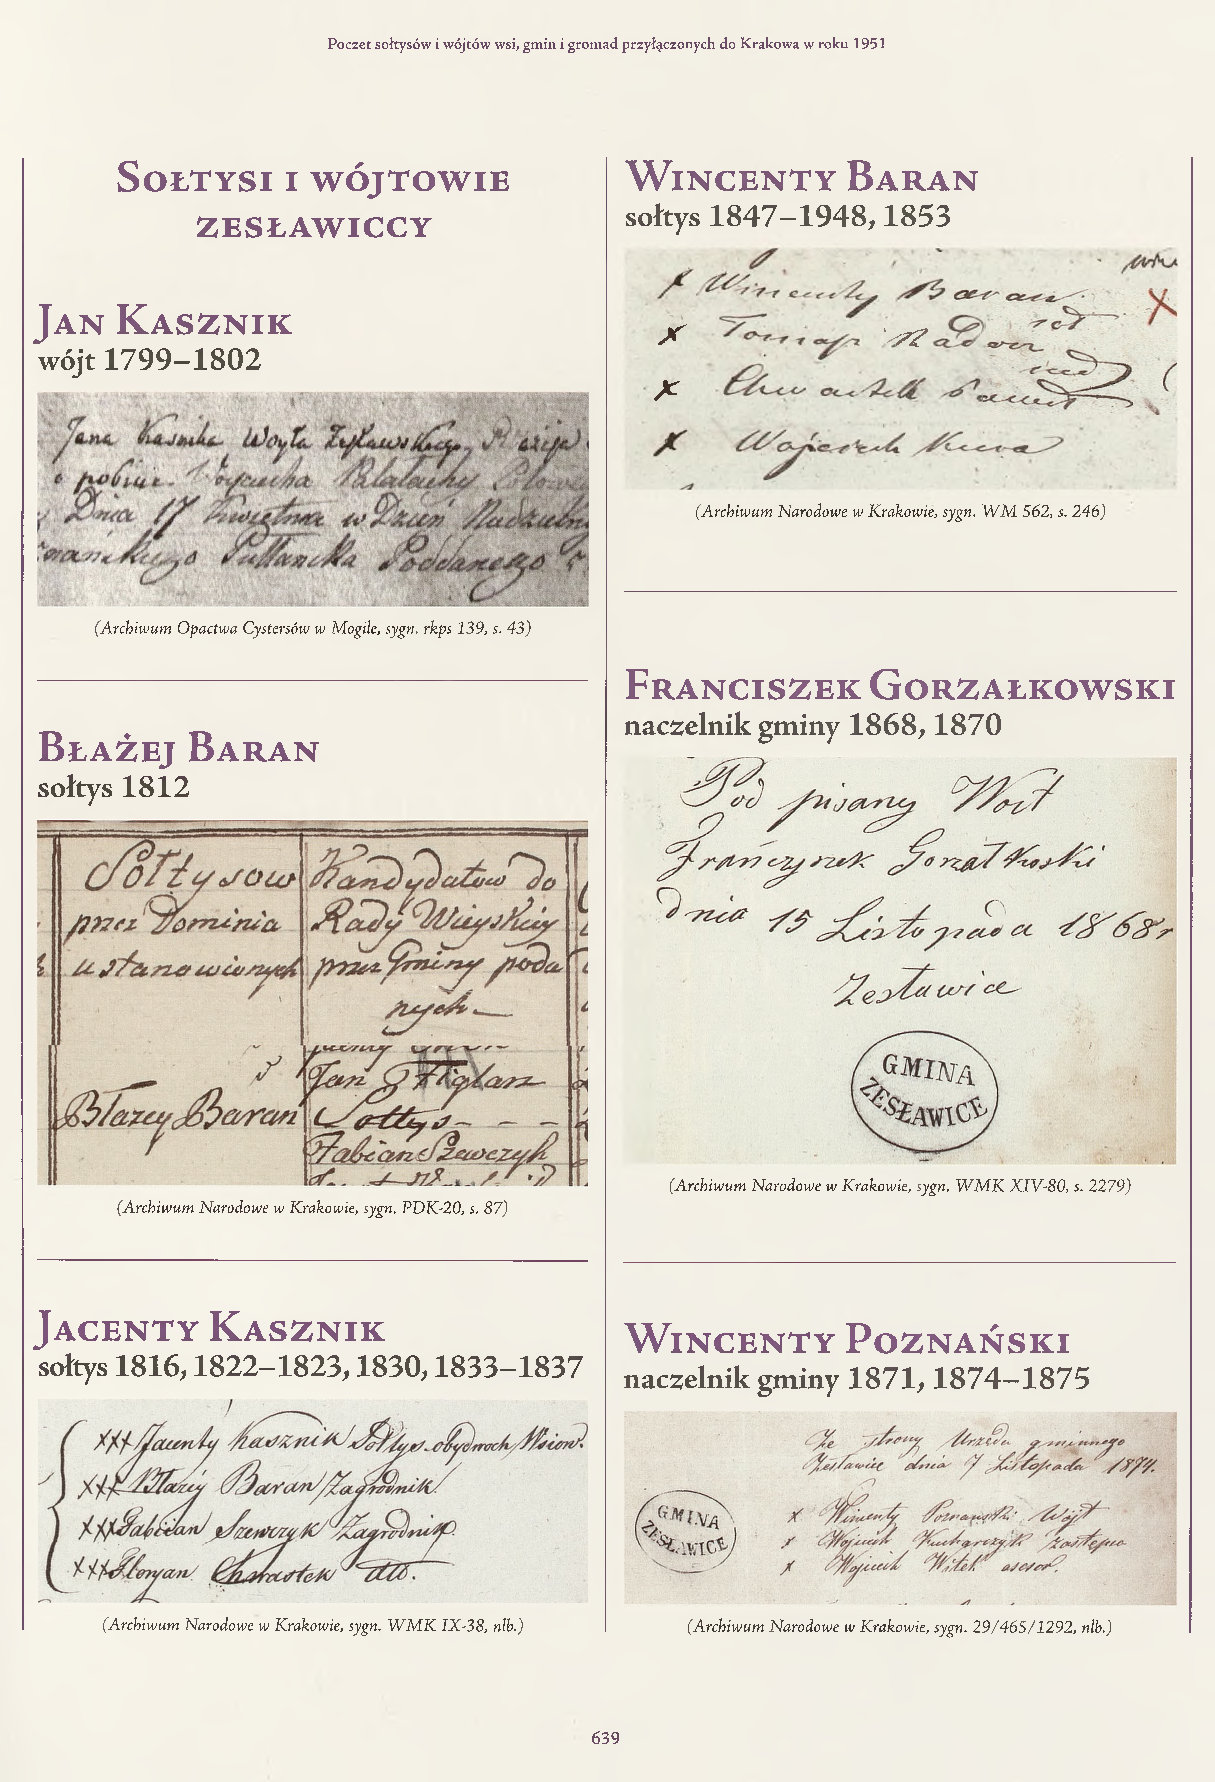 Poczet sołtysów i wójtów wsi, gmin i gromad przyłączonych do Krakowa w roku 1951
Sołtysi i wójtowie
zesławiccy
Jan Kasznik
wójt 1799–1802
Jana Kasnika Woyta Zesławskiego
o pobicie Woyciecha
Dnia 17 Kwietnia w Dzień
Poddanego
(Archiwum Opactwa Cystersów w Mogile, sygn. rkps 139, s. 43)
Błażej Baran
sołtys 1812
Sołtysow
przez Dominia
ustanowionych
Kandydatow do
Rady Wieyskiey
przez Gminy poda
nych
Jan Figlarz
Błazey Baran Sołtys
Fabian Szewczyk
(Archiwum Narodowe w Krakowie, sygn. PDK-20, s. 87)
Jacenty Kasznik
sołtys 1816, 1822–1823, 1830, 1833–1837
xxx Jacenty Kasznik Sołtys obydwoch Wsiow.
xxx Błazey Baran Zagrodnik
xxx Fabian Szewczyk Zagrodnik
xxx Floryan Chwastek dtto.
(Archiwum Narodowe w Krakowie, sygn. WMK IX-38, nlb.)
Wincenty Baran
sołtys 1847–1948, 1853
x Wincenty Baran
x Tomasz
x
x Wojciech Kurva
(Archiwum Narodowe w Krakowie, sygn. WM 562, s. 246)
Franciszek Gorzałkowski
naczelnik gminy 1868, 1870
Pod pisany Wort
Frańczyszek Gorzałkoski
dnia 15 Listopada 1868r
Zesławice
GMINA
ZESŁAWICE
(Archiwum Narodowe w Krakowie, sygn. WMK XIV-80, s. 2279)
Wincenty Poznański
naczelnik gminy 1871, 1874–1875
Ze strony Urzędu gminnego
Zesławice dnia 7 Listopada 1874.
GMINA
ZESŁAWICE
x Wincenty Poznański Wójt
x Wojciech Kucharczyk zastępca
x Wojciech Witek asesor.
(Archiwum Narodowe w Krakowie, sygn. 29/465/1292, nlb.)
639